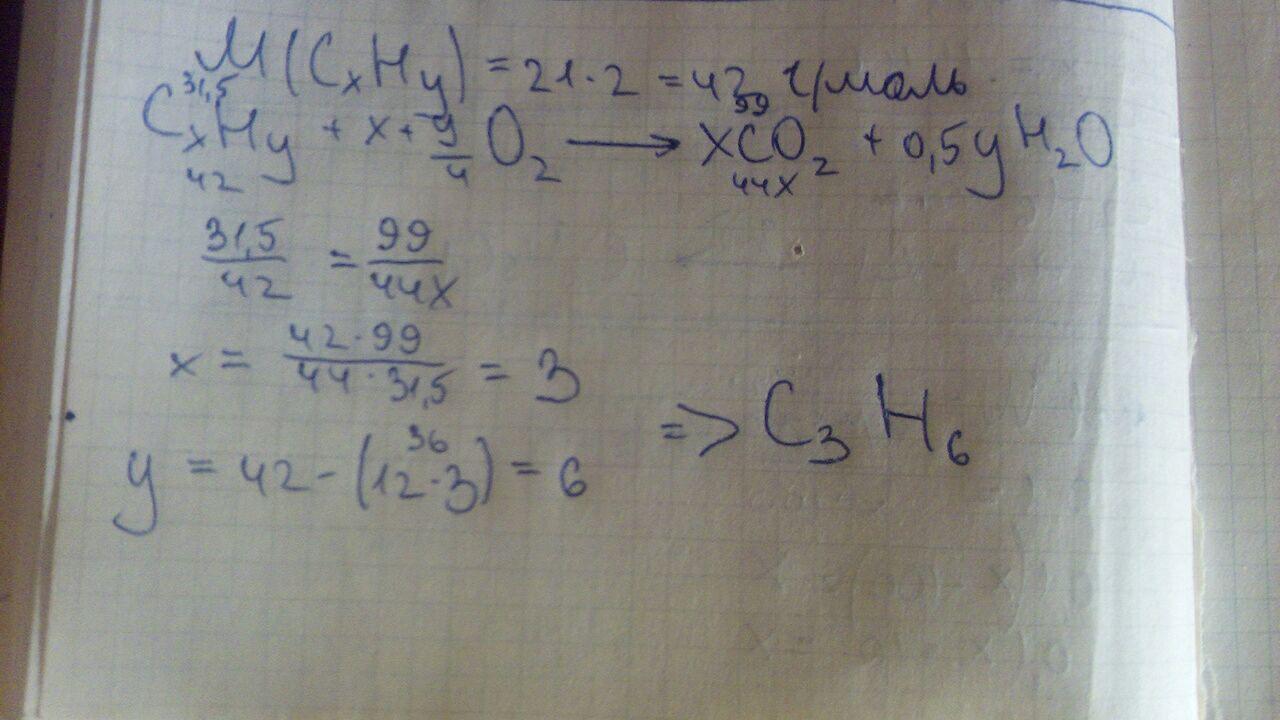 M(CxHy) = 21·2 = 42 г/моль
31,5 99
CxHy + x + y/4 O₂ → xCO₂ + 0,5y H₂O
42 44x
31,5/42 = 99/44x
x = 42·99/44·31,5 = 3
36
y = 42 - (12·3) = 6
=> C₃H₆